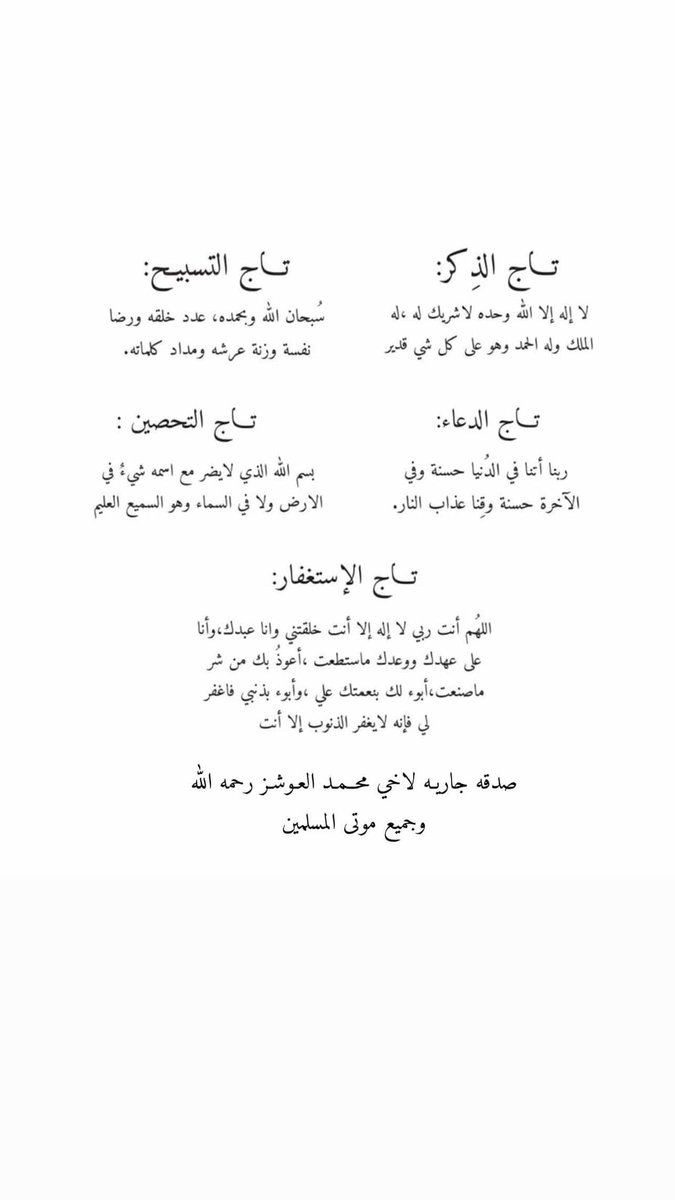 تـــاج الذِكر:
لا إله إلا الله وحده لاشريك له ،له
الملك وله الحمد وهو على كل شي قدير
تـــاج التسبيـح:
سُبحان الله وبحمده، عدد خلقه ورضا
نفسة وزنة عرشه ومداد كلماته.
تـــاج الدعاء:
ربنا أتنا في الدُنيا حسنة وفي
الآخرة حسنة وقِنا عذاب النار.
تـــاج التحصين :
بسم الله الذي لايضر مع اسمه شيءٌ في
الارض ولا في السماء وهو السميع العليم
تـــاج الإستغفار:
اللهُم أنت ربي لا إله إلا أنت خلقتني وانا عبدك،وأنا
على عهدك ووعدك ماستطعت ،أعوذُ بك من شر
ماصنعت،أبوء لك بنعمتك علي ،وأبوء بذنبي فاغفر
لي فإنه لايغفر الذنوب إلا أنت
صدقه جاريـه لاخي محـــمـد العـوشـز رحمه الله
وجميع موتى المسلمين